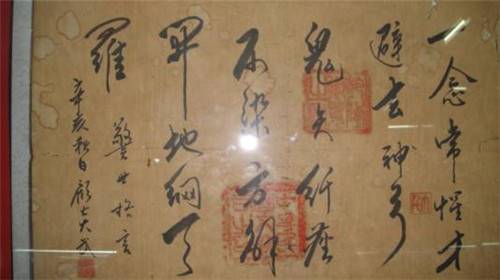 一念常惺才
避去神弓
鬼矢纤塵
不染方解
開地網天
羅 警世格言
辛亥秋日顧